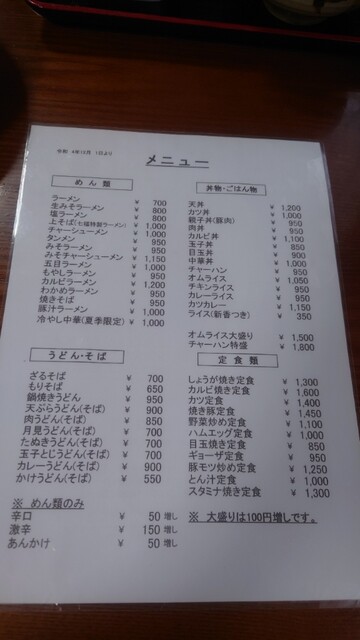 令和 4年12月 1日より
メニュー
めん類
ラーメン ￥ 700
生みそラーメン ￥ 800
塩ラーメン ￥ 800
上そば(七福特製ラーメン) ￥ 1,000
チャーシューメン ￥ 1,000
タンメン ￥ 950
みそラーメン ￥ 950
みそチャーシューメン ￥ 1,150
五目ラーメン ￥ 1,000
もやしラーメン ￥ 950
カルビラーメン ￥ 1,200
わかめラーメン ￥ 950
焼きそば ￥ 950
豚汁ラーメン ￥ 1,000
冷やし中華(夏季限定) ￥ 1,000
うどん・そば
ざるそば ￥ 700
もりそば ￥ 650
鍋焼きうどん ￥ 950
天ぷらうどん(そば) ￥ 900
肉うどん(そば) ￥ 850
月見うどん(そば) ￥ 700
たぬきうどん(そば) ￥ 700
玉子とじうどん(そば) ￥ 700
カレーうどん(そば) ￥ 900
かけうどん(そば) ￥ 550
※ めん類のみ
辛口 ￥ 50 増し
激辛 ￥ 150 増し
あんかけ ￥ 50 増し
丼物・ごはん物
天丼 ￥ 1,200
カツ丼 ￥ 1,000
親子丼(豚肉) ￥ 950
肉丼 ￥ 950
カルビ丼 ￥ 1,100
玉子丼 ￥ 850
目玉丼 ￥ 900
中華丼 ￥ 1,000
チャーハン ￥ 950
オムライス ￥ 1,050
チキンライス ￥ 950
カレーライス ￥ 950
カツカレー ￥ 1,150
ライス(新香つき) ￥ 350
オムライス大盛り ￥ 1,500
チャーハン特盛 ￥ 1,800
定食類
しょうが焼き定食 ￥ 1,300
カルビ焼き定食 ￥ 1,600
カツ定食 ￥ 1,400
焼き豚定食 ￥ 1,450
野菜炒め定食 ￥ 1,100
ハムエッグ定食 ￥ 1,000
目玉焼き定食 ￥ 850
ギョーザ定食 ￥ 950
豚モツ炒め定食 ￥ 1,250
とん汁定食 ￥ 1,000
スタミナ焼き定食 ￥ 1,300
※ 大盛りは100円増しです。